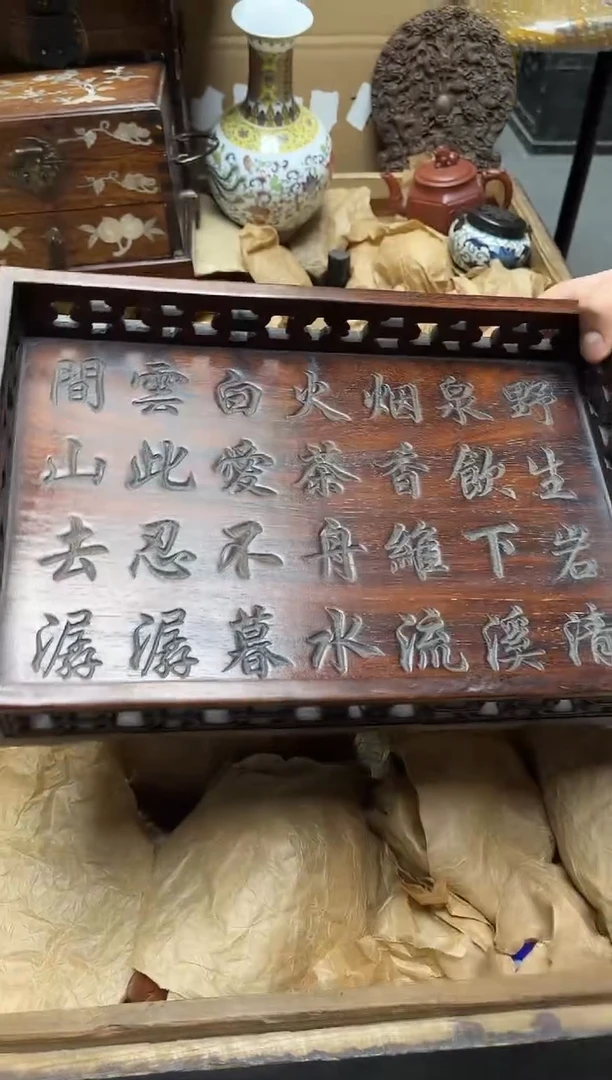 野泉烟火白雲間
生飲香茶愛此山
岩下維舟不忍去
清溪流水暮潺潺